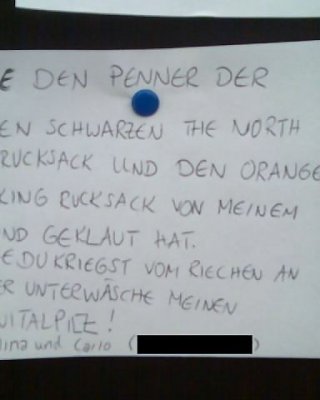 E DEN PENNER DER
EN SCHWARZEN THE NORTH
RUCKSACK UND DEN ORANGE
KING RUCKSACK VON MEINEM
ND GEKLAUT HAT.
E DU KRIEGST VOM RIECHEN AN
ER UNTERWÄSCHE MEINEN
NITALPILZ!
lina und Carlo (
)